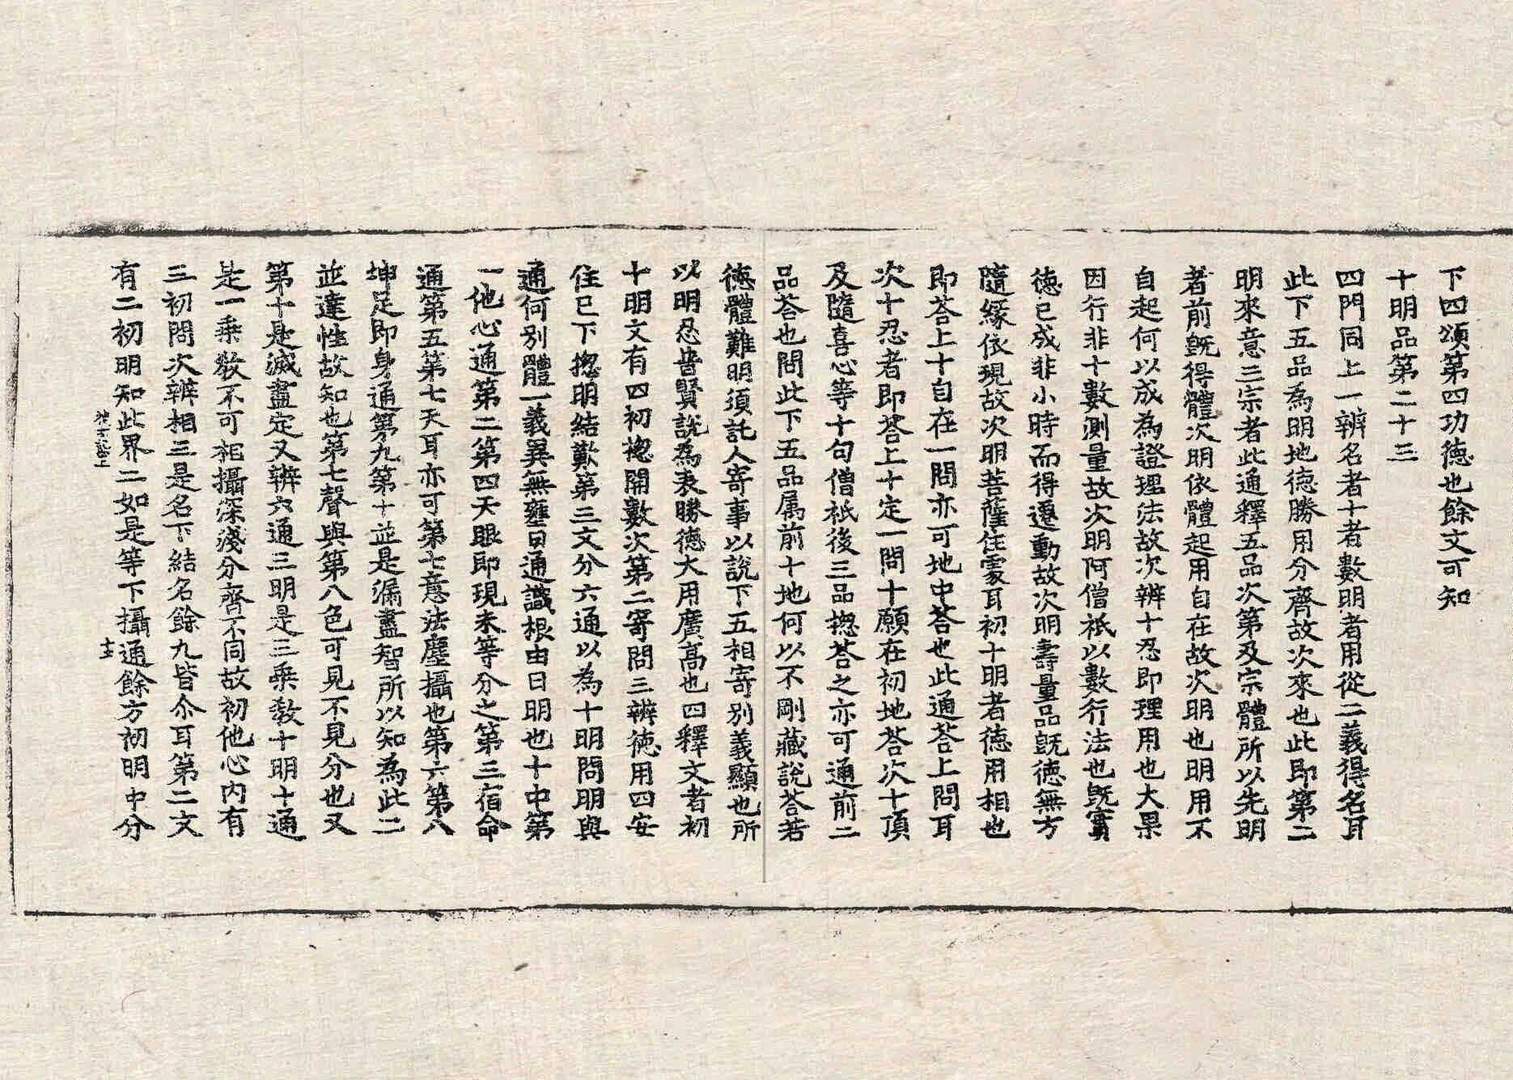 下四頌第四功德也餘文可知
十明品第二十三
四門同上一辨名者十者數明者用從二義得名耳
此下五品為明地德勝用分齊故次來也此即第二
明來意三宗者此通釋五品次第及宗體所以先明
者前既得體次明依體起用自在故次明也明用不
自起何以成為證理法故次辨十忍即理用也大果
因行非十數測量故次明阿僧祇以數行法也既實
德已成非小時而得遷動故次明壽量品既德無方
隨緣依現故次明菩薩住處耳初十明者德用相也
即荅上十自在一問亦可地中荅也此通荅上問耳
次十忍者即荅上十定一問十願在初地荅次十頂
及隨喜心等十句僧祇後三品揔荅之亦可通前二
品荅也問此下五品属前十地何以不剛藏說荅若
德體難明須託人寄事以說下五相寄別義顯也所
以明忍普賢說為表勝德大用廣高也四釋文者初
十明文有四初揔開數次第二寄問三辨德用四安
住已下揔明結歎第三文分六通以為十明問明與
通何別體一義異無壅曰通識根由曰明也十中第
一他心通第二第四天眼即現未等分之第三宿命
通第五第七天耳亦可第七意法塵攝也第六第八
坤足即身通第九第十並是漏盡智所以知為此二
並達性故知也第七聲與第八色可見不見分也又
第十是滅盡定又辨六通三明是三乘教十明十通
是一乘教不可相攝深淺分齊不同故初他心內有
三初問次辨相三是名下結名餘九皆尒耳第二文
有二初明知此界二如是等下攝通餘方初明中分